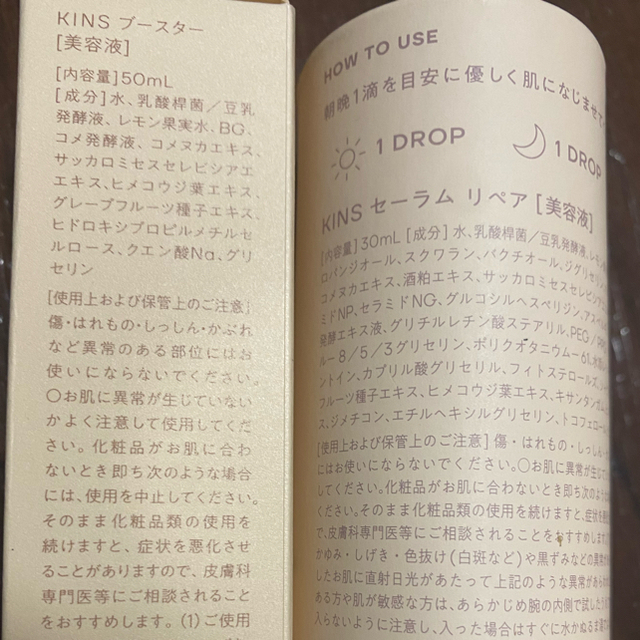 KINS ブースター
[美容液]
[内容量]50mL
[成分]水、乳酸桿菌/豆乳
発酵液、レモン果実水、BG、
コメ発酵液、コメヌカエキス、
サッカロミセスセレビシアエ
エキス、ヒメコウジ葉エキス、
グレープフルーツ種子エキス、
ヒドロキシプロピルメチルセ
ルロース、クエン酸Na、グリ
セリン
[使用上および保管上のご注意]
傷・はれもの・しっしん・かぶれ
など異常のある部位にはお
使いにならないでください。
〇お肌に異常が生じていない
かよく注意して使用してくだ
さい。化粧品がお肌に合わ
ないとき即ち次のような場合
には、使用を中止してください。
そのまま化粧品類の使用を
続けますと、症状を悪化させ
ることがありますので、皮膚科
専門医等にご相談されること
をおすすめします。(1)ご使用
HOW TO USE
朝晩1滴を目安に優しく肌になじませて
1 DROP
1 DROP
KINS セーラム リペア [美容液]
[内容量]30mL [成分]水、乳酸桿菌/豆乳発酵液、レモン
ロパンジオール、スクワラン、バクチオール、ジグリセリン
コメヌカエキス、酒粕エキス、サッカロミセスセレビシ
ミドNP、セラミドNG、グルコシルヘスペリジン、アスペル
発酵エキス液、グリチルレチン酸ステアリル、PEG/PP
ルー8/5/3グリセリン、ポリクオタニウム-61、水
ントイン、カプリル酸グリセリル、フィトステロールズ、
フルーツ種子エキス、ヒメコウジ葉エキス、キサンタンガ
ス、ジメチコン、エチルヘキシルグリセリン、トコフェロー
[使用上および保管上のご注意] 傷・はれもの・しっしん・か
にはお使いにならないでください。〇お肌に異常が生じてい
してください。化粧品がお肌に合わないとき即ち次のような
ください。そのまま化粧品類の使用を続けますと、症状を悪
で、皮膚科専門医等にご相談されることをおすすめします
かゆみ・しげき・色抜け(白斑など)や黒ずみなどの異常
したお肌に直射日光があたって上記のような異常があらわ
ある方や肌が敏感な方は、あらかじめ腕の内側で試した
入らないように注意し、入った場合はすぐに水かぬるま